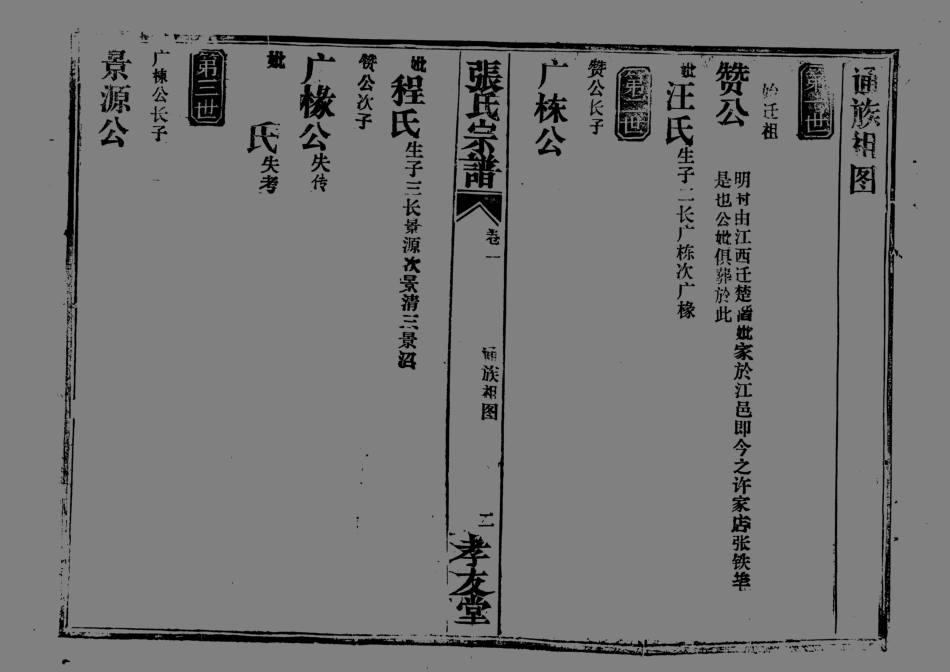 通族祖图
第一世
始迁祖
赞公
明时由江西迁楚 妣家於江邑即今之许家店张铁
是也公妣俱葬於此
妣汪氏生子二长广栋次广椽
第二世
赞公长子
广栋公
張氏宗譜
卷一
通族祖图
二
孝友堂
妣程氏生子三长景源次景清三景沼
赞公次子
广椽公失传
妣 氏失考
第三世
广栋公长子
景源公